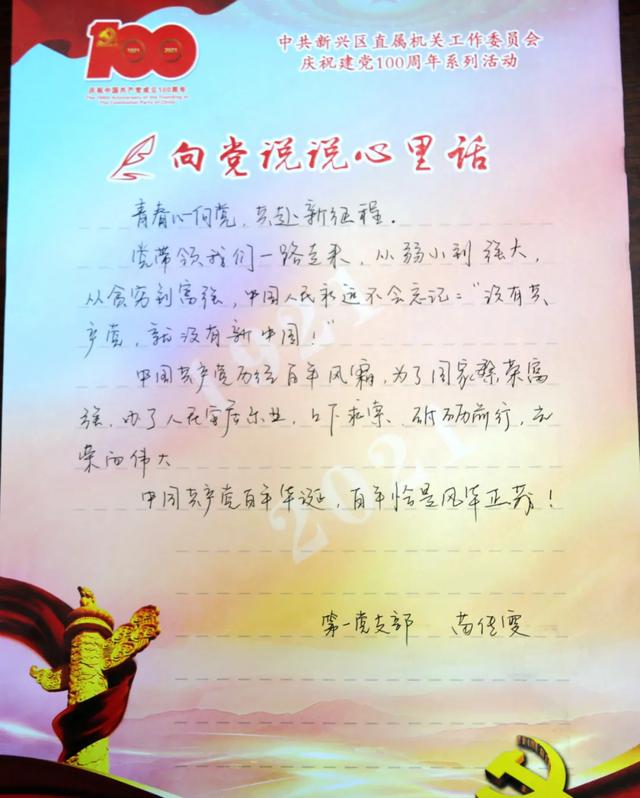 100
1921 2021
庆祝中国共产党成立100周年
The 100th Anniversary of the Founding of
The Communist Party of China
中共新兴区直属机关工作委员会
庆祝建党100周年系列活动
向党说说心里话
青春心向党,共赴新征程。
党带领我们一路走来,从弱小到强大,
从贫穷到富强,中国人民永远不会忘记:“没有共
产党,就没有新中国!”
中国共产党历经百年风霜,为了国家繁荣富
强、为了人民安居乐业,上下求索、砥砺前行,
荣而伟大
中国共产党百年华诞,百年恰是风华正茂!
第一党支部 苗佳雯
1921
2021